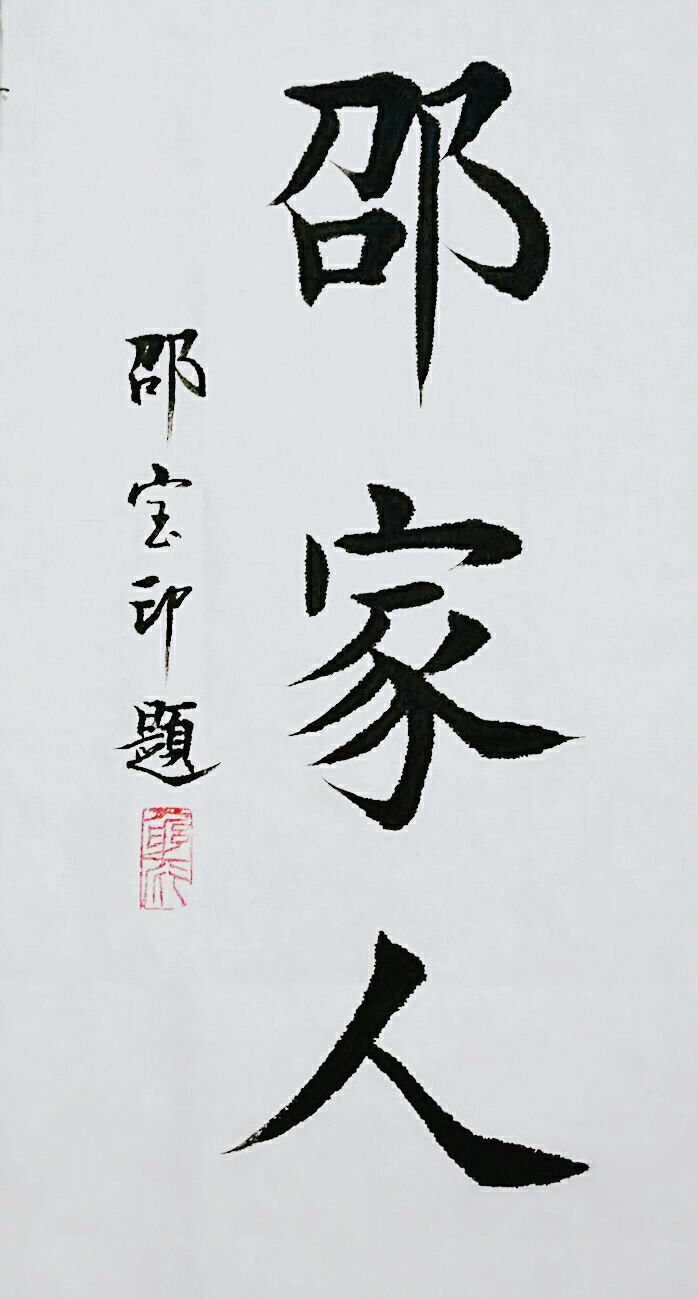 邵家人
邵宝印題